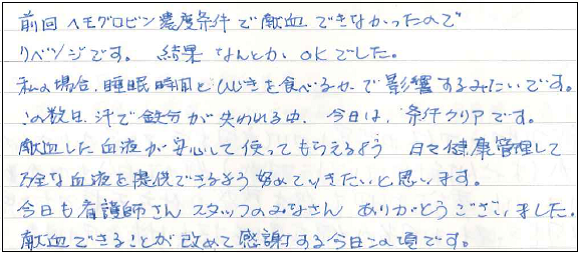 前回ヘモグロビン濃度条件で献血できなかったので
リベンジです。 結果なんとかOKでした。
私の場合、睡眠時間とひじきを食べるかで影響するみたいです。
この数日、汗で鉄分が失われる中、今日は、条件クリアです。
献血した血液が安心して使ってもらえるよう 日々健康管理して
万全な血液を提供できるよう努めていきたいと思います。
今日も看護師さん スタッフのみなさん ありがとうございました。
献血できることが改めて感謝する今日この頃です。